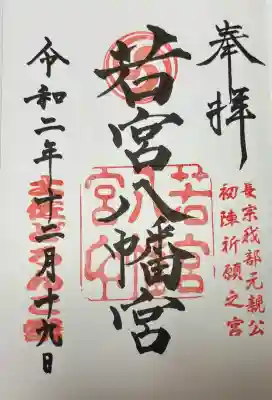 奉拝
長宗我部元親公
初陣祈願之宮
若宮八幡宮
令和二年十二月十九日